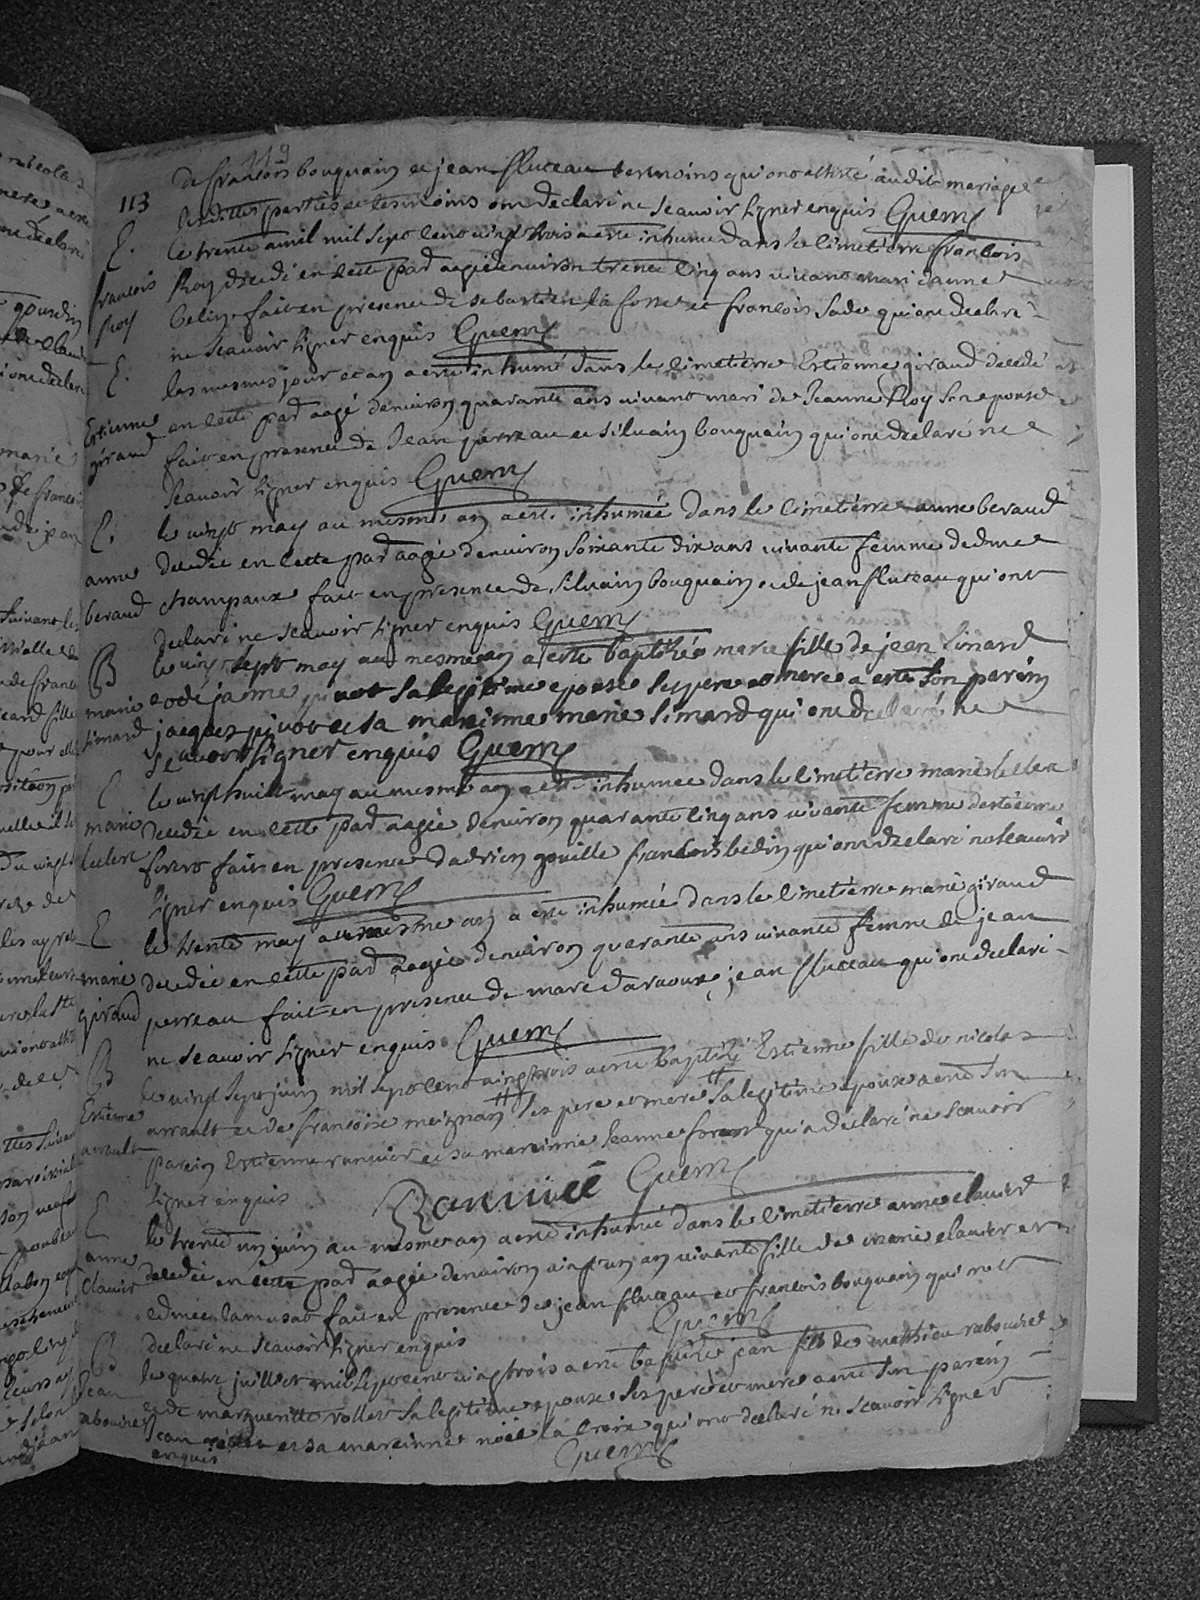 113
de francois bouquain et jean fluteau temoins qui ont assisté audit mariage
lesdittes parties et tesmoins ont declaré ne scavoir signer enquis Guerin
E. francois Roy
le trente avril mil sept cent vingt trois a esté inhumé dans le cimetierre francois
Roy decedé en cette parr aagé denviron trente cinq ans vivant mari danne
belin fait en presence de sebastien la forre et francois sade qui ont declaré
ne scavoir signer enquis Guerin
E. Estienne giraud
les mesmes jour et an a esté inhumé dans le cimetierre Estienne giraud decedé
en cette parr aagé denviron quarante ans vivant mari de Jeanne Roy son epouse
fait en presence de Jean perreau et silvain bouquain qui ont declaré ne
scavoir signer enquis Guerin
E. anne beraud
le vingt may au mesme an a esté inhumée dans le cimetierre anne beraud
decedée en cette parr aagée denviron soixante dix ans vivante femme dedmee
champaux fait en presence de silvain bouquain et de jean fluteau qui ont
declaré ne scavoir signer enquis Guerin
B marie simard
le vingt sept may au mesme an a esté baptisée marie fille de jean simard
et de janne pivot sa legitime epouse ses pere et mere a esté son parin
jacques pivot et sa marinne marie simard qui ont declaré ne
scavoir signer enquis Guerin
E marie leclerc
le vingt huit may au mesme an a esté inhumée dans le cimetierre marie leclerc
decedée en cette parr aagée denviron quarante cinq ans vivante femme destienne
forest fait en presence dadrien gouille francois bedin qui ont declaré ne scavoir
signer enquis Guerin
E marie giraud
le trente may au mesme an a esté inhumée dans le cimetierre marie giraud
decedée en cette parr aagée denviron quarante ans vivante femme de jean
perreau fait en presence de marc darvoux, jean fluteau qui ont declaré
ne scavoir signer enquis Guerin
B Estienne arrault
le vingt sept juin mil sept cent vingt trois a esté baptisé Estienne fils de nicolas
arrault et de francoise meignan ses pere et mere sa legitime epouse a esté son
parein Estienne ranvier et sa mareinne Jeanne forest qui a declaré ne scavoir
signer enquis Ranvié Guerin
E anne Clavier
le trente un juin au mesme an a esté inhumée dans le cimetierre anne clavier
decedée en cette parr aagée denviron vingt un an vivante fille de marie clavier et
edmée lamusat fait en presence de jean fluteau et francois bouquain qui ont
declaré ne scavoir signer enquis Guerin
B Jean rabouinet
le quatre juillet mil sept cent vingt trois a esté baptisé jean fils de matthieu rabouinet
et de margueritte rollet sa legitime epouse ses pere et mere a esté son parein
jean et sa mareinne noëe la croix qui ont declaré ne scavoir signer
enquis Guerin